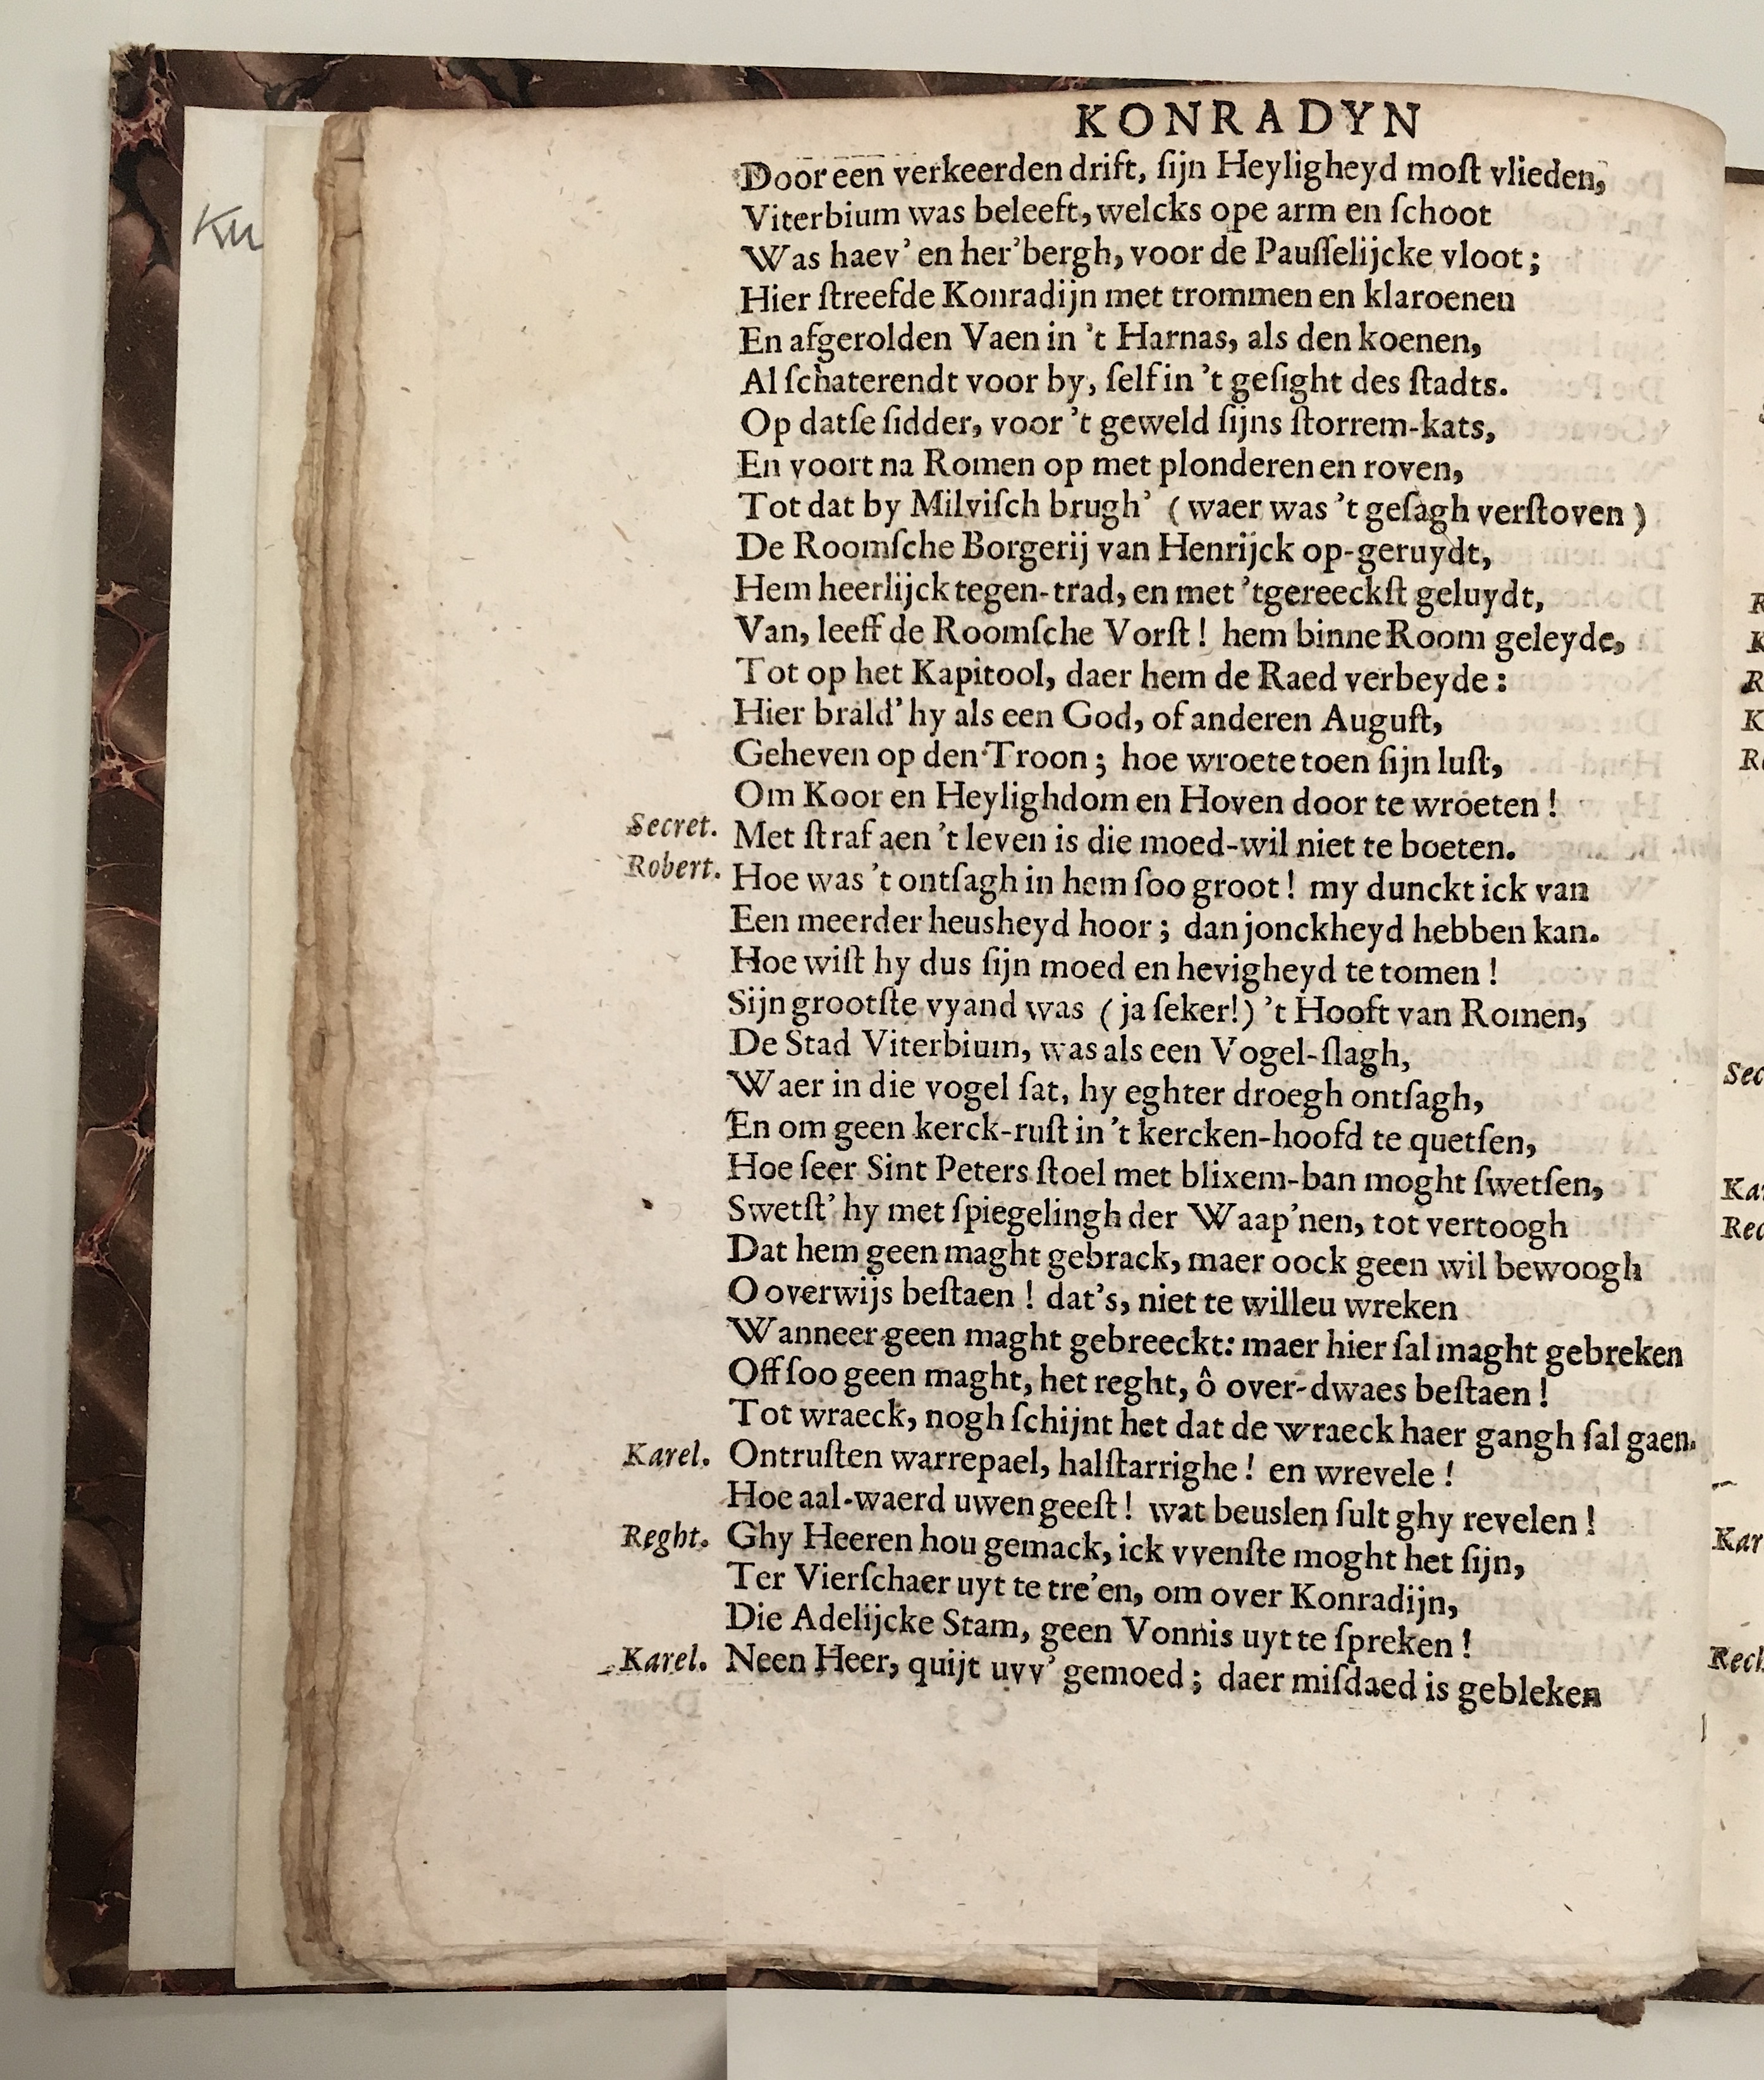 KONRADYN
Door een verkeerden drift, ſijn Heyligheyd moſt vlieden,
Viterbium was beleeft, welcks ope arm en ſchoot
Was haev' en her'bergh, voor de Pauſſelijcke vloot;
Hier ſtreefde Konradijn met trommen en klaroenen
En afgerolden Vaen in 't Harnas, als den koenen,
Al ſchaterendt voor by, ſelf in 't geſight des ſtadts.
Op datſe ſidder, voor 't geweld ſijns ſtorrem-kats,
En voort na Romen op met plonderen en roven,
Tot dat by Milviſch brugh' (waer was 't geſagh verſtoven)
De Roomſche Borgerij van Henrijck op-geruydt,
Hem heerlijck tegen-trad, en met 'tgereeckſt geluydt,
Van, leeff de Roomſche Vorſt! hem binne Room geleyde,
Tot op het Kapitool, daer hem de Raed verbeyde:
Hier brald' hy als een God, of anderen Auguſt,
Geheven op den Troon; hoe wroete toen ſijn luſt,
Om Koor en Heylighdom en Hoven door te wroeten!
Secret. Met ſtraf aen 't leven is die moed-wil niet te boeten.
Robert. Hoe was 't ontſagh in hem ſoo groot! my dunckt ick van
Een meerder heusheyd hoor; dan jonckheyd hebben kan.
Hoe wiſt hy dus ſijn moed en hevigheyd te tomen!
Sijn grootſte vyand was (ja ſeker!) 't Hooft van Romen,
De Stad Viterbium, was als een Vogel-ſlagh,
Waer in die vogel ſat, hy eghter droegh ontſagh,
En om geen kerck-ruſt in 't kercken-hoofd te quetſen,
Hoe ſeer Sint Peters ſtoel met blixem-ban moght ſwetſen,
Swetſt' hy met ſpiegelingh der Waap'nen, tot vertoogh
Dat hem geen maght gebrack, maer oock geen wil bewoogh
O overwijs beſtaen! dat's, niet te willeu wreken
Wanneer geen maght gebreeckt: maer hier ſal maght gebreken
Off ſoo geen maght, het reght, ô over-dwaes beſtaen!
Tot wraeck, nogh ſchijnt het dat de wraeck haer gangh ſal gaen.
Karel. Ontruſten warrepael, halſtarrighe! en wrevele!
Hoe aal-waerd uwen geeſt! wat beuslen ſult ghy revelen!
Reght. Ghy Heeren hou gemack, ick vvenſte moght het ſijn,
Ter Vierſchaer uyt te tre'en, om over Konradijn,
Die Adelijcke Stam, geen Vonnis uyt te ſpreken!
Karel. Neen Heer, quijt uvv' gemoed; daer miſdaed is gebleken